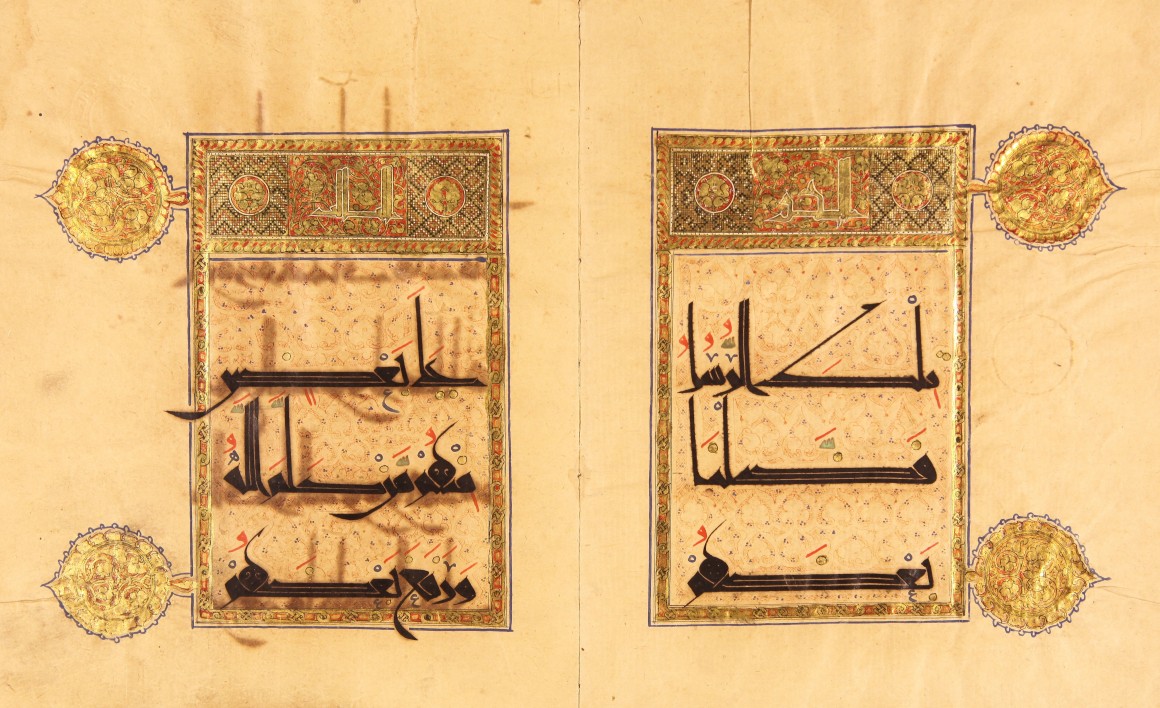 الجز
تلك الرسل
فضلنا
بعضهم
الثلث
على بعض
منهم من كلم الله
ورفع بعضهم